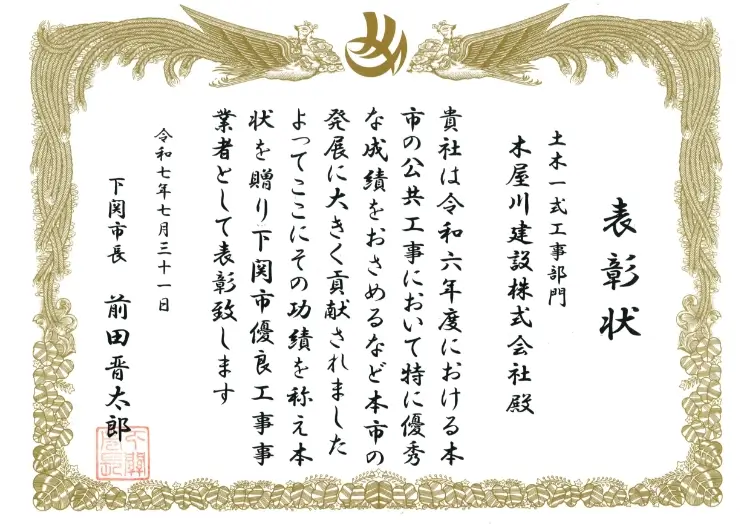 表彰状
土木一式工事部門
木屋川建設株式会社殿
貴社は令和六年度における本
市の公共工事において特に優秀
な成績をおさめるなど本市の
発展に大きく貢献されました
よってここにその功績を称え本
状を贈り下関市優良工事事
業者として表彰致します
令和七年七月三十一日
下関市長 前田晋太郎